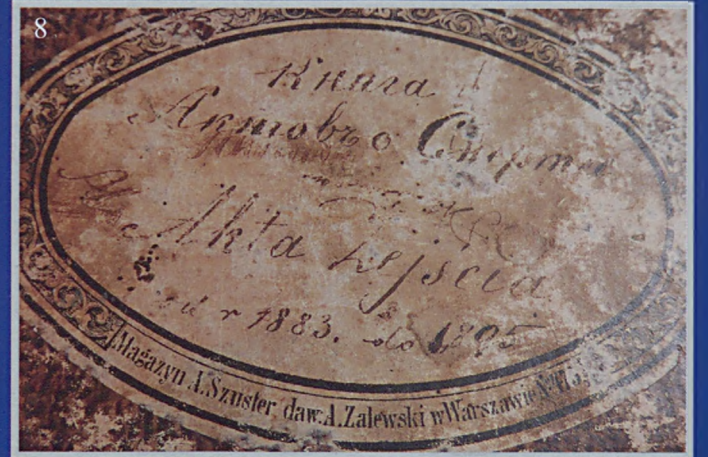 8
Книга
Актовъ о Смерти
Akta zejścia
od r 1883. do 1895
Magazyn A. Szuster daw. A. Zalewski w Warszawie